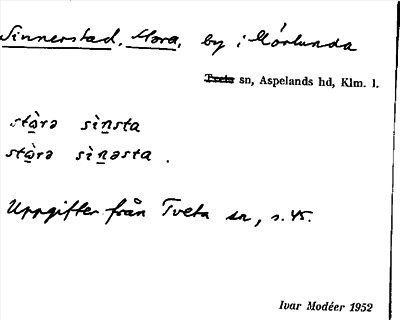 Sinnerstad, Stora, by i Mörlunda
Tveta sn, Aspelands hd, Klm. l.
stò̱rə sìṉsta
stò̱rə sìṉəsta .
Uppgifter från Tveta sn, s. 45.
Ivar Modéer 1952